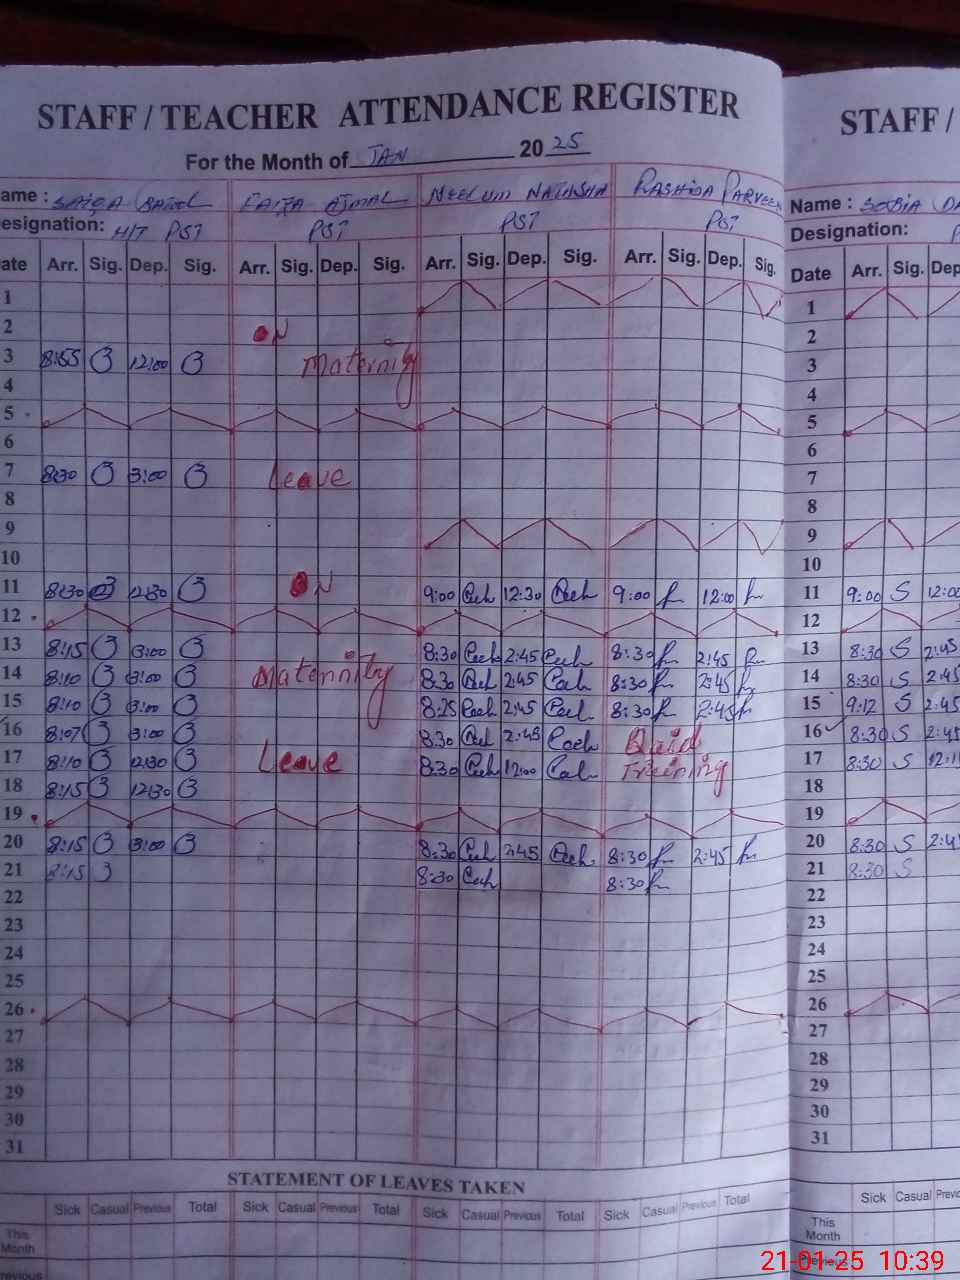 STAFF / TEACHER ATTENDANCE REGISTER
STAFF /
For the Month of JAN 2025
ame : SAIQA FAIZA AJMAL NEELUM NATASHA RASHIDA PARVEEN
Name : SOBIA
esignation: H/T PST PST PST PST
Designation: P
ate Arr. Sig. Dep. Sig. Arr. Sig. Dep. Sig. Arr. Sig. Dep. Sig. Arr. Sig. Dep. Sig.
Date Arr. Sig. Dep
1 1
2 ON 2
3 8:55 12:00 Maternity 3
4 4
5 5
6 6
7 8:30 3:00 Leave 7
8 8
9 9
10 10
11 8:30 12:30 ON 9:00 12:30 9:00 12:00 11 9:00 S 12:00
12 12
13 8:15 3:00 8:30 2:45 8:30 2:45 13 8:30 S 2:45
14 8:10 3:00 Maternity 8:30 2:45 8:30 2:45 14 8:30 S 2:45
15 8:10 3:00 8:25 2:45 8:30 2:45 15 9:12 S 2:45
16 8:07 3:00 8:30 2:45 Quid 16 8:30 S 2:45
17 8:10 12:30 Leave 8:30 12:00 Training 17 8:30 S 12:1
18 8:15 12:30 18
19 19
20 8:15 3:00 8:30 2:45 8:30 2:45 20 8:30 S 2:4
21 8:15 8:30 8:30 21 8:30 S
22 22
23 23
24 24
25 25
26 26
27 27
28 28
29 29
30 30
31 31
STATEMENT OF LEAVES TAKEN
Sick Casual Previous Total Sick Casual Previous Total Sick Casual Previous Total Sick Casual Previous Total
Sick Casual Previo
This Month
This Month
revious
Previous
21-01-25 10:39